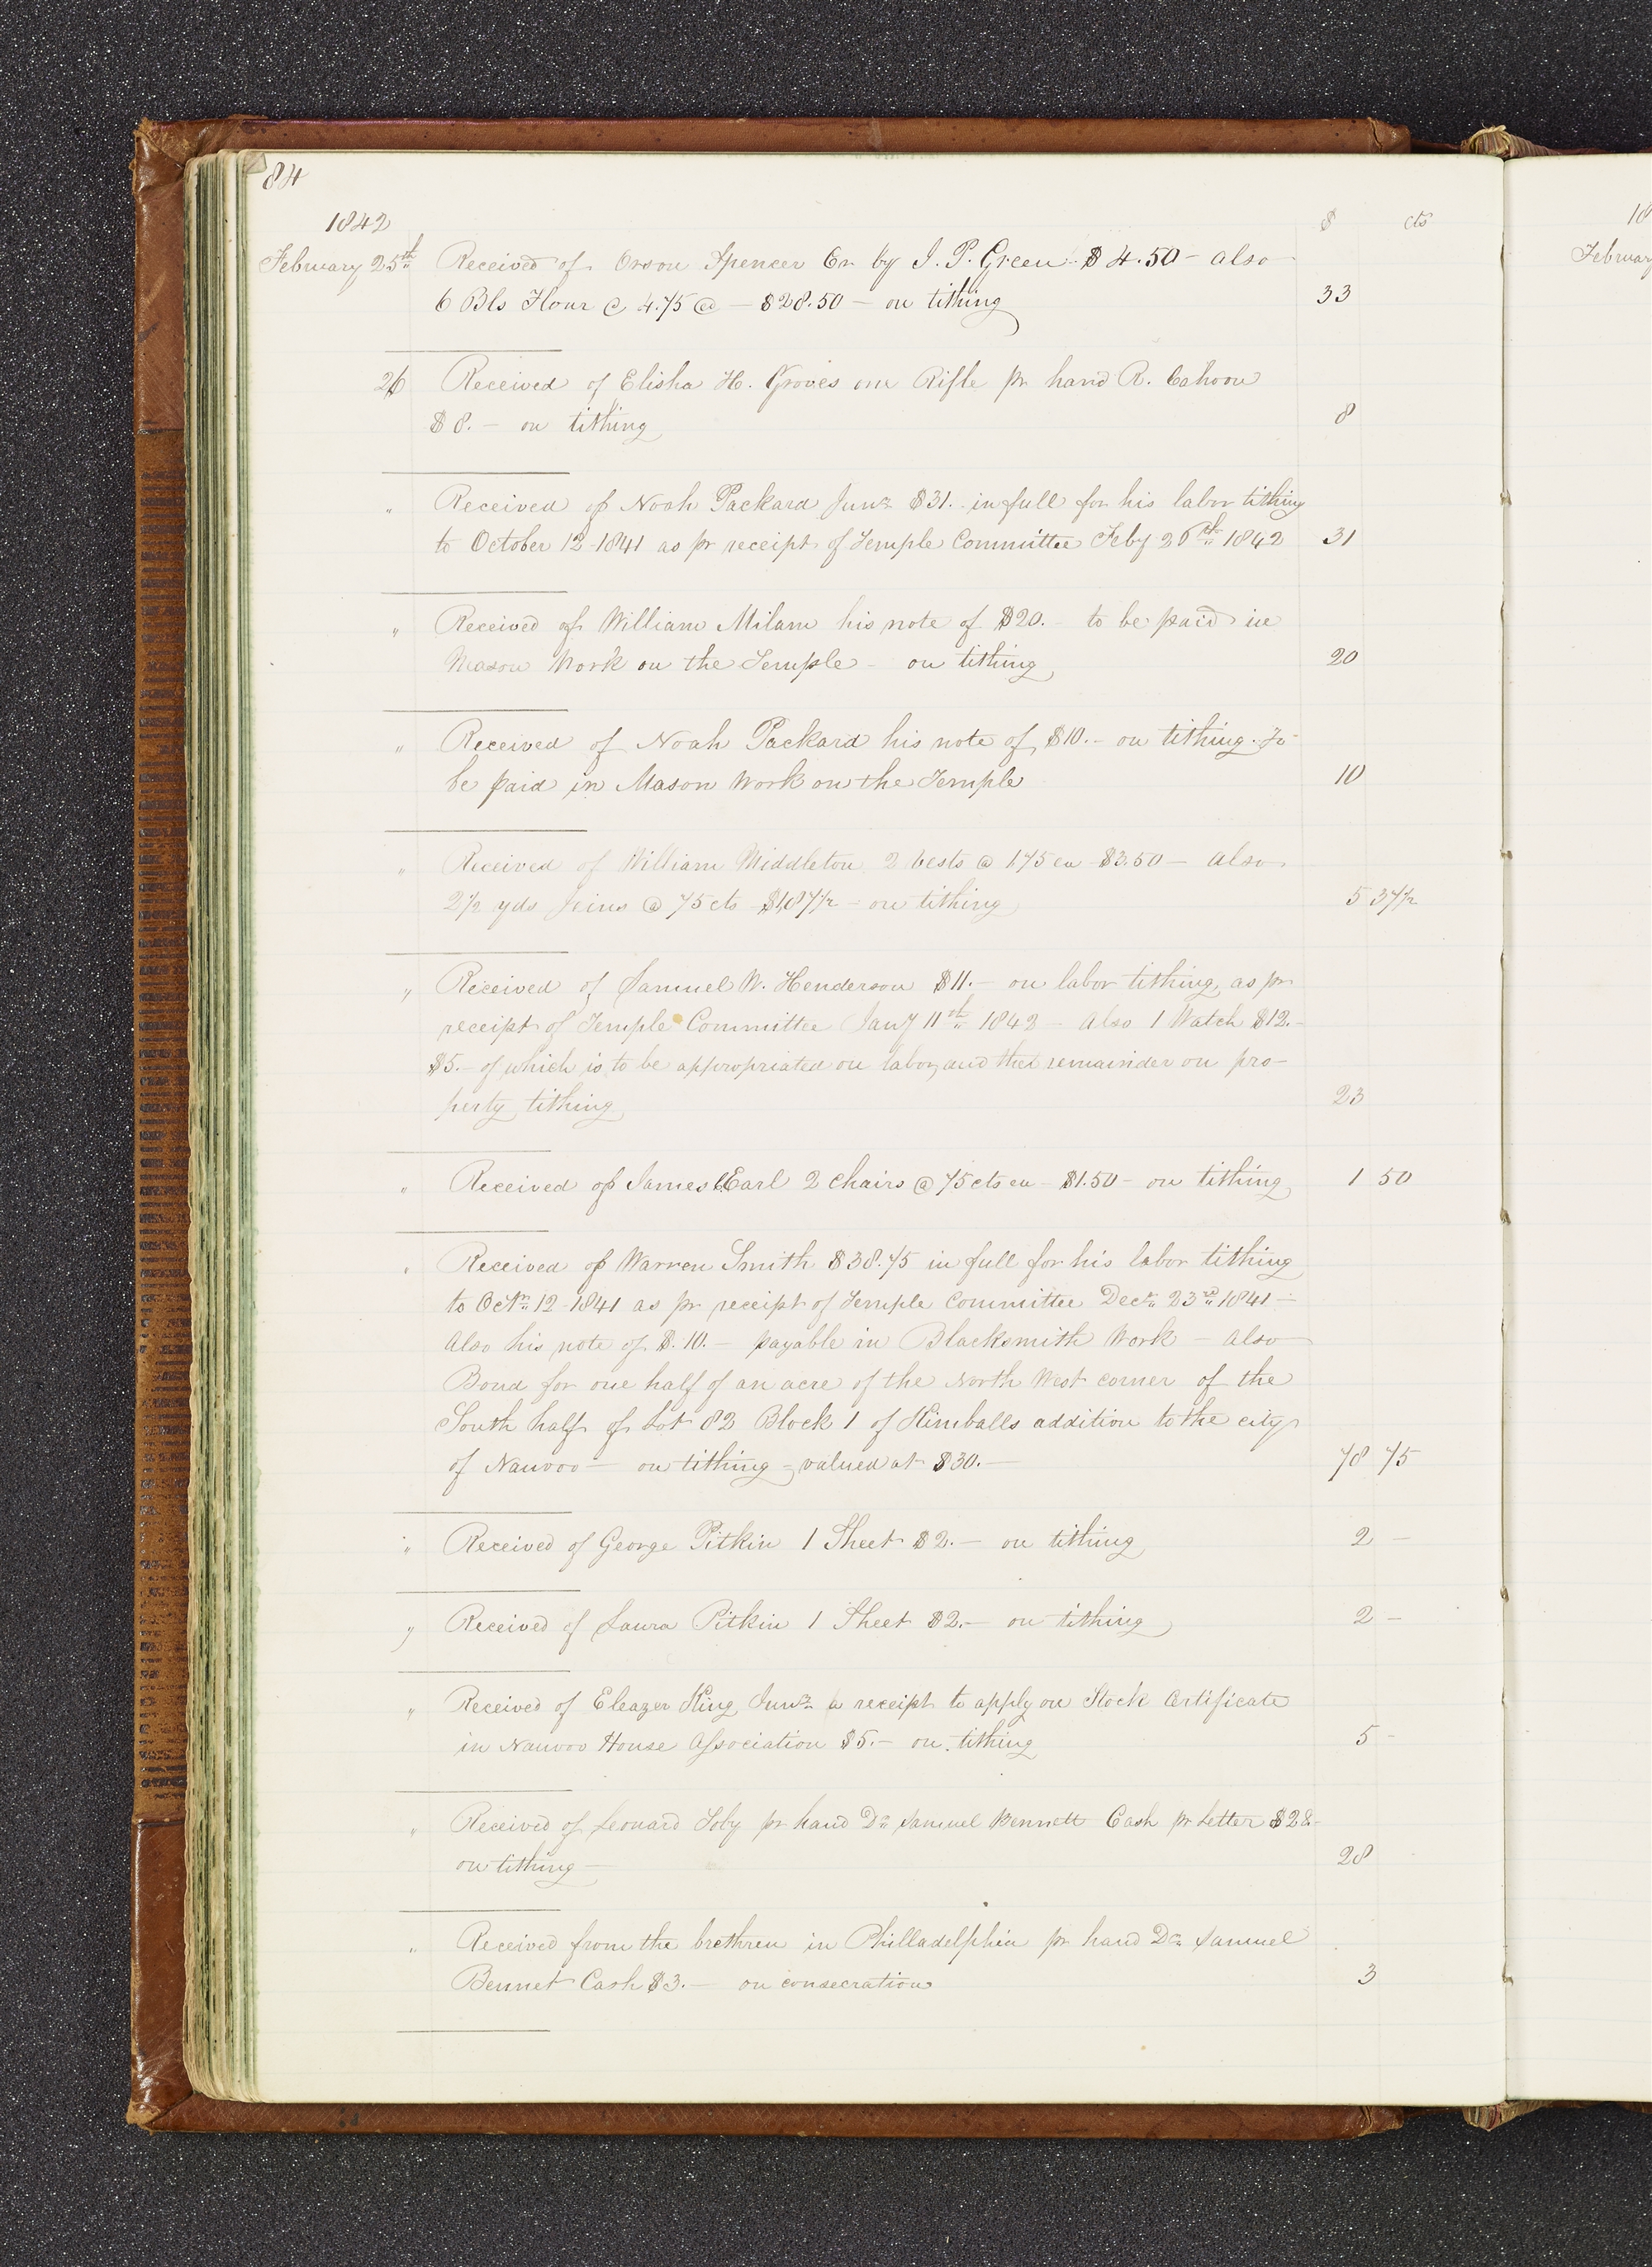 84
1842 $ cts
February 25th Received of Orson Spencer Cr by J. P. Green $4.50 – also
6 Bls Flour @ 4.75 @ – $28.50 – on tithing 33
26 Received of Elisha H. Groves one Rifle pr hand R. Cahoon
$8. – on tithing 8
" Received of Noah Packard Junr $31. in full for his labor tithing
to October 12 1841 as pr receipt of Temple Committee Feby 26th 1842 31
" Received of William Milam his note of $20. – to be paid in
Mason Work on the Temple – on tithing 20
" Received of Noah Packard his note of $10. – on tithing. To
be paid in Mason Work on the Temple 10
" Received of William Middleton 2 Vests @ 1.75 ea $3.50 – also
2 1/2 yds Jeins @ 75 cts $1,87 1/2 – on tithing 5 37 1/2
" Received of Samuel W. Henderson $11. – on labor tithing, as pr
receipt of Temple Committee Jany 11th 1842 – also 1 Watch $12. –
$5. – of which is to be appropriated on labor, and the remainder on pro-
perty tithing 23
" Received of James C. Earl 2 Chairs @ 75 cts ea – $1.50 – on tithing 1 50
" Received of Warren Smith $38.75 in full for his labor tithing
to Octr 12 1841 as pr receipt of Temple Committee Decr 23rd 1841 –
Also his note of $.10. – payable in Blacksmith Work – also
Bond for one half of an acre of the North West corner of the
South half of Lot 82 Block 1 of Kimballs addition to the city
of Nauvoo – on tithing – valued at $30. – 78 75
" Received of George Pitkin 1 Sheet $2. – on tithing 2 –
" Received of Laura Pitkin 1 Sheet $2. – on tithing 2 –
" Received of Eleazer King Junr a receipt to apply on Stock Certificate
in Nauvoo House Association $5. – on tithing 5 –
" Received of Leonard Soby pr hand Dr Samuel Bennett Cash pr Letter $28 –
on tithing – 28
" Received from the brethren in Philladelphia pr hand Dr Samuel
Bennet Cash $3. – on consecration 3
18
February